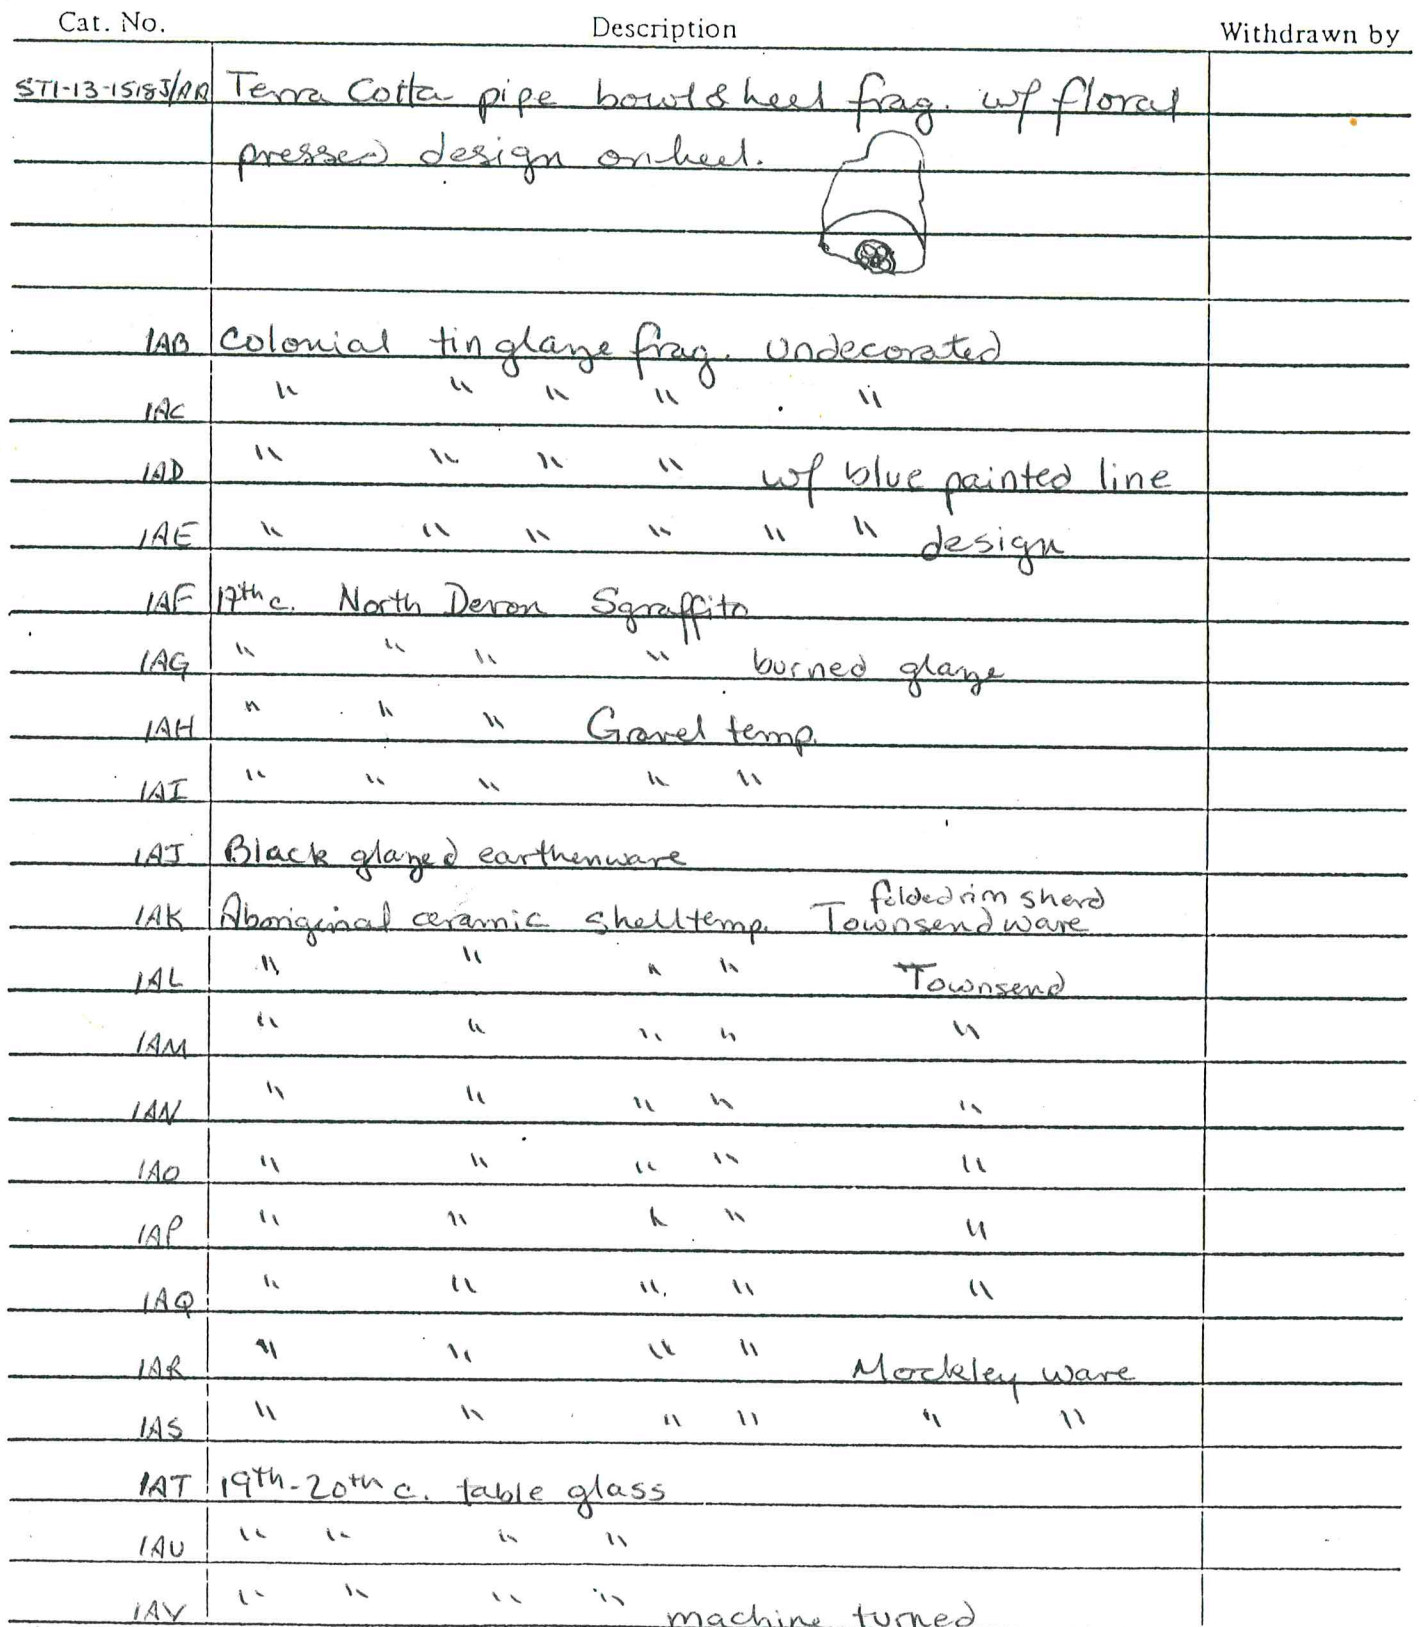 Cat. No. Description Withdrawn by
Terra Cotta pipe bowl & heel frag. w/ floral
pressed design on heel.
1AB Colonial tin glaze frag. Undecorated
1AC " " " " "
1AD " " " " w/ blue painted line
1AE " " " " " " design
1AF 17th c. North Devon Sgraffito
1AG " " " " burned glaze
1AH " " " Gravel temp.
1AI " " " " "
1AJ Black glazed earthenware
folded rim sherd
1AK Aboriginal ceramic shell temp. Townsend ware
1AL " " " " Townsend
1AM " " " " "
1AN " " " " "
1AO " " " " "
1AP " " " " "
1AQ " " " " "
1AR " " " " Mockley ware
1AS " " " " " "
1AT 19th-20th c. table glass
1AU " " " "
1AV " " " " machine turned